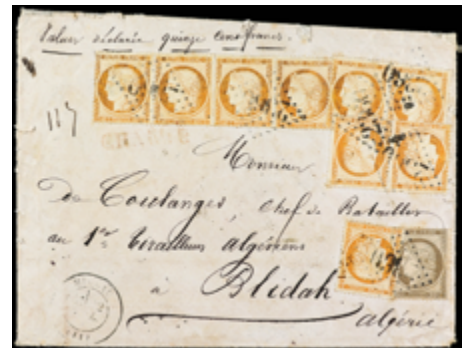 Valeur déclarée quinze cents francs.
117
CHARGÉ
Monsieur
De Coulanges, chef de Bataillon
au 1er tirailleurs algériens
à
Blidah
algérie